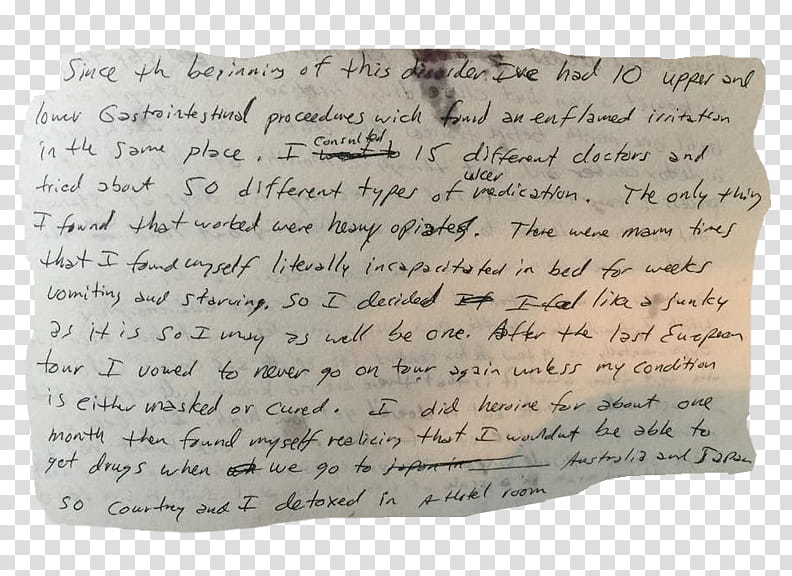 Since th beginning of this disorder Ive had 10 upper and
lower Gastrointestinal proceedures wich found an enflamed irritation
in the same place. I consulted 15 different doctors and
tried about 50 different types of ulcer medication. The only thing
I found that worked were heavy opiates. There were many times
that I found myself literally incapacitated in bed for weeks
vomiting and starving. So I decided If I feel like a junky
as it is so I may as well be one. After the last European
tour I vowed to never go on tour again unless my condition
is either masked or cured. I did heroine for about one
month then found myself realicing that I wouldnt be able to
get drugs when we go to japan in Australia and Japan
so Courtney and I detoxed in a Hotel room